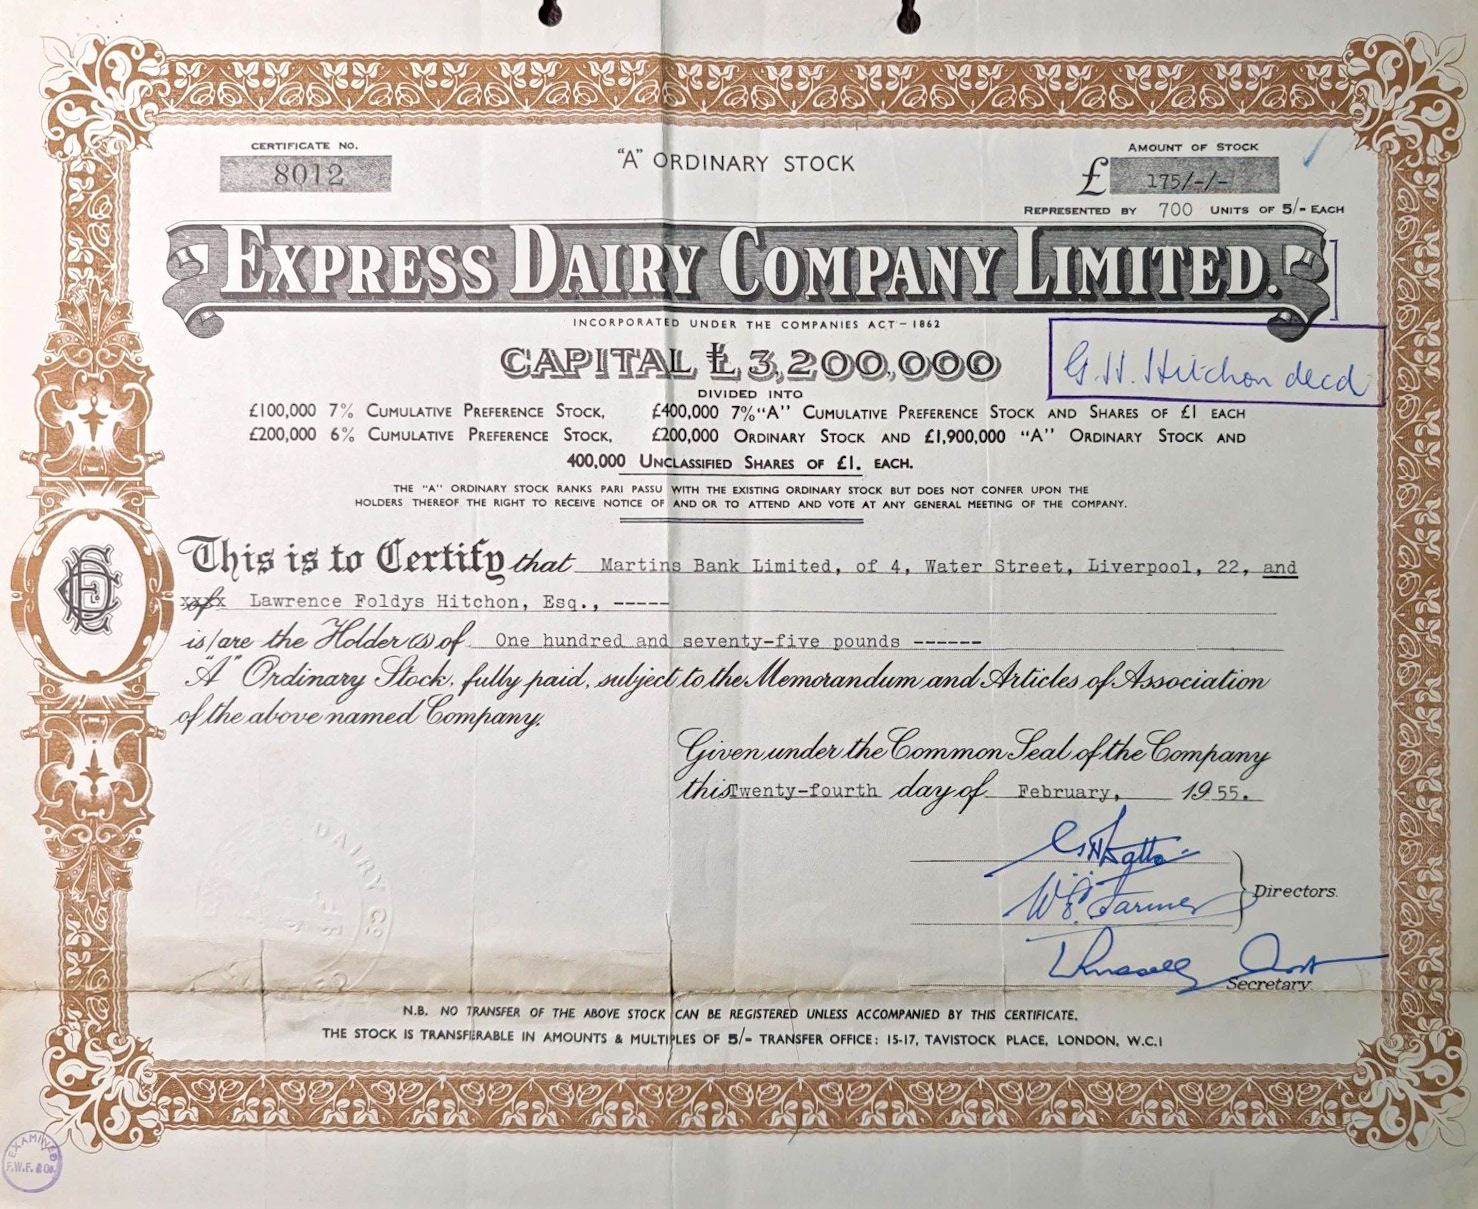 CERTIFICATE NO.
8012
"A" ORDINARY STOCK
AMOUNT OF STOCK
£ 175/-/-
REPRESENTED BY 700 UNITS OF 5/- EACH
EXPRESS DAIRY COMPANY LIMITED.
INCORPORATED UNDER THE COMPANIES ACT – 1862
CAPITAL £3,200,000
G. H. Hitchon decd
DIVIDED INTO
£100,000 7% CUMULATIVE PREFERENCE STOCK, £400,000 7% "A" CUMULATIVE PREFERENCE STOCK AND SHARES OF £1 EACH
£200,000 6% CUMULATIVE PREFERENCE STOCK, £200,000 ORDINARY STOCK AND £1,900,000 "A" ORDINARY STOCK AND
400,000 UNCLASSIFIED SHARES OF £1. EACH.
THE "A" ORDINARY STOCK RANKS PARI PASSU WITH THE EXISTING ORDINARY STOCK BUT DOES NOT CONFER UPON THE
HOLDERS THEREOF THE RIGHT TO RECEIVE NOTICE OF AND OR TO ATTEND AND VOTE AT ANY GENERAL MEETING OF THE COMPANY.
This is to Certify that Martins Bank Limited, of 4, Water Street, Liverpool, 22, and
of Lawrence Foldys Hitchon, Esq., -----
is/are the Holder(s) of One hundred and seventy-five pounds ------
"A" Ordinary Stock, fully paid, subject to the Memorandum and Articles of Association
of the above named Company.
Given under the Common Seal of the Company
this Twenty-fourth day of February, 1955.
W. E. Farmer
Directors.
Russell
Secretary.
DAIRY CO
N.B. NO TRANSFER OF THE ABOVE STOCK CAN BE REGISTERED UNLESS ACCOMPANIED BY THIS CERTIFICATE.
THE STOCK IS TRANSFERABLE IN AMOUNTS & MULTIPLES OF 5/- TRANSFER OFFICE: 15-17, TAVISTOCK PLACE, LONDON, W.C.1
EXAMINED
F.W.F. & Co.